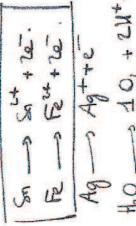 Sn ⟶ Sn²⁺ + 2e⁻.
Fe ⟶ Fe²⁺ + 2e⁻.
Ag ⟶ Ag⁺ + e⁻
H₂O ⟶ 1 O₂ + 2H⁺